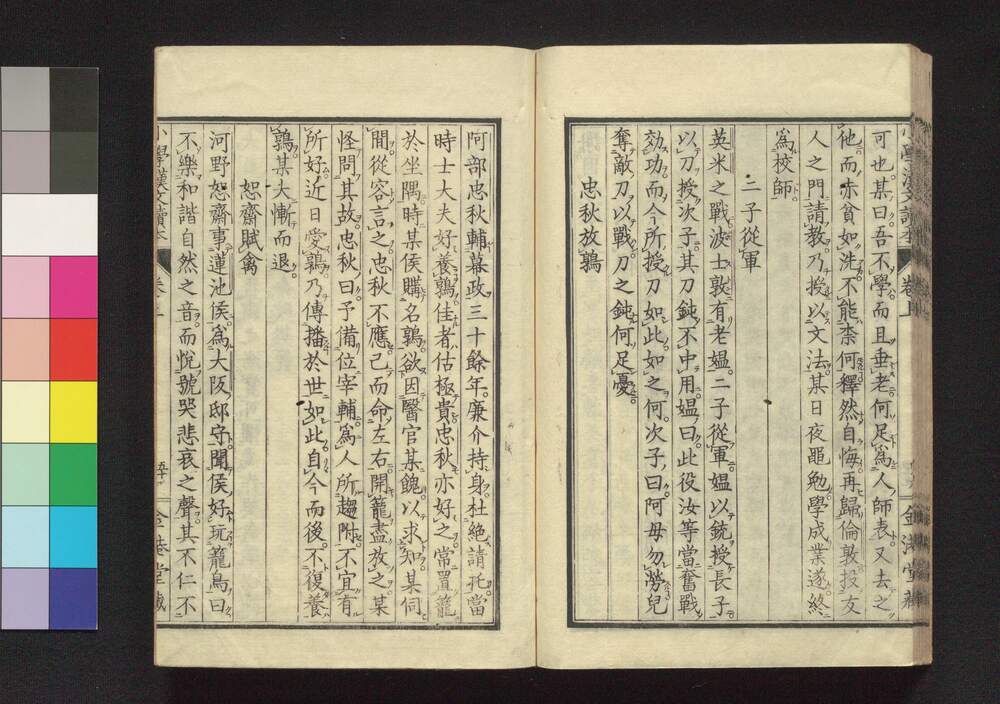 可也某曰吾不學而且垂老何足爲人師表又去之
他而赤貧如洗不能柰何釋然自悔再歸倫敦投友
人之門請教乃授以文法某日夜黽勉學成業遂終
爲校師
二子從軍
英米之戰波士敦有老媼二子從軍媼以銃授長子
以刀授次子其刀鈍不中用媼曰此役汝等當奮戰
效功而今所授刀如此如之何次子曰阿母勿勞兒
奪敵刀以戰刀之鈍何足憂
忠秋放鶉
阿部忠秋輔幕政三十餘年廉介持身杜絶請託當
時士大夫好養鶉佳者估極貴忠秋亦好之常置籠
於坐隅時某侯購名鶉欲因醫官某餽以求知某伺
間從容言之忠秋不應已而命左右開籠盡放之某
怪問其故忠秋曰予備位宰輔爲人所趨附不宜有
所好近日愛鶉乃傳播於世如此自今而後不復養
鶉某大慚而退
恕齋賦禽
河野恕齋事蓮池侯爲大阪邸守聞侯好玩籠鳥曰
不樂和諧自然之音而悅號哭悲哀之聲其不仁不
小學漢文讀本 卷上 金港堂藏